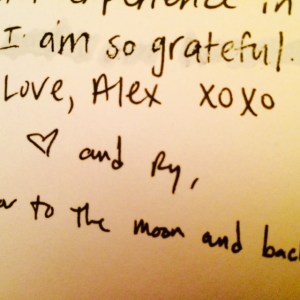 experience in
I am so grateful.
Love, Alex XOXO
♡ and Ry,
to the moon and back